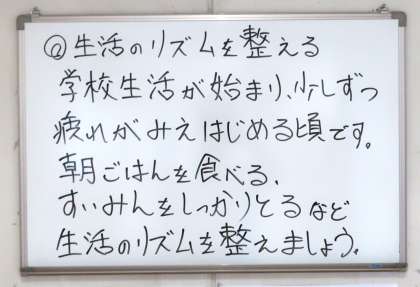 @生活のリズムを整える
学校生活が始まり、少しずつ
疲れがみえはじめる頃です。
朝ごはんを食べる、
すいみんをしっかりとるなど
生活のリズムを整えましょう。